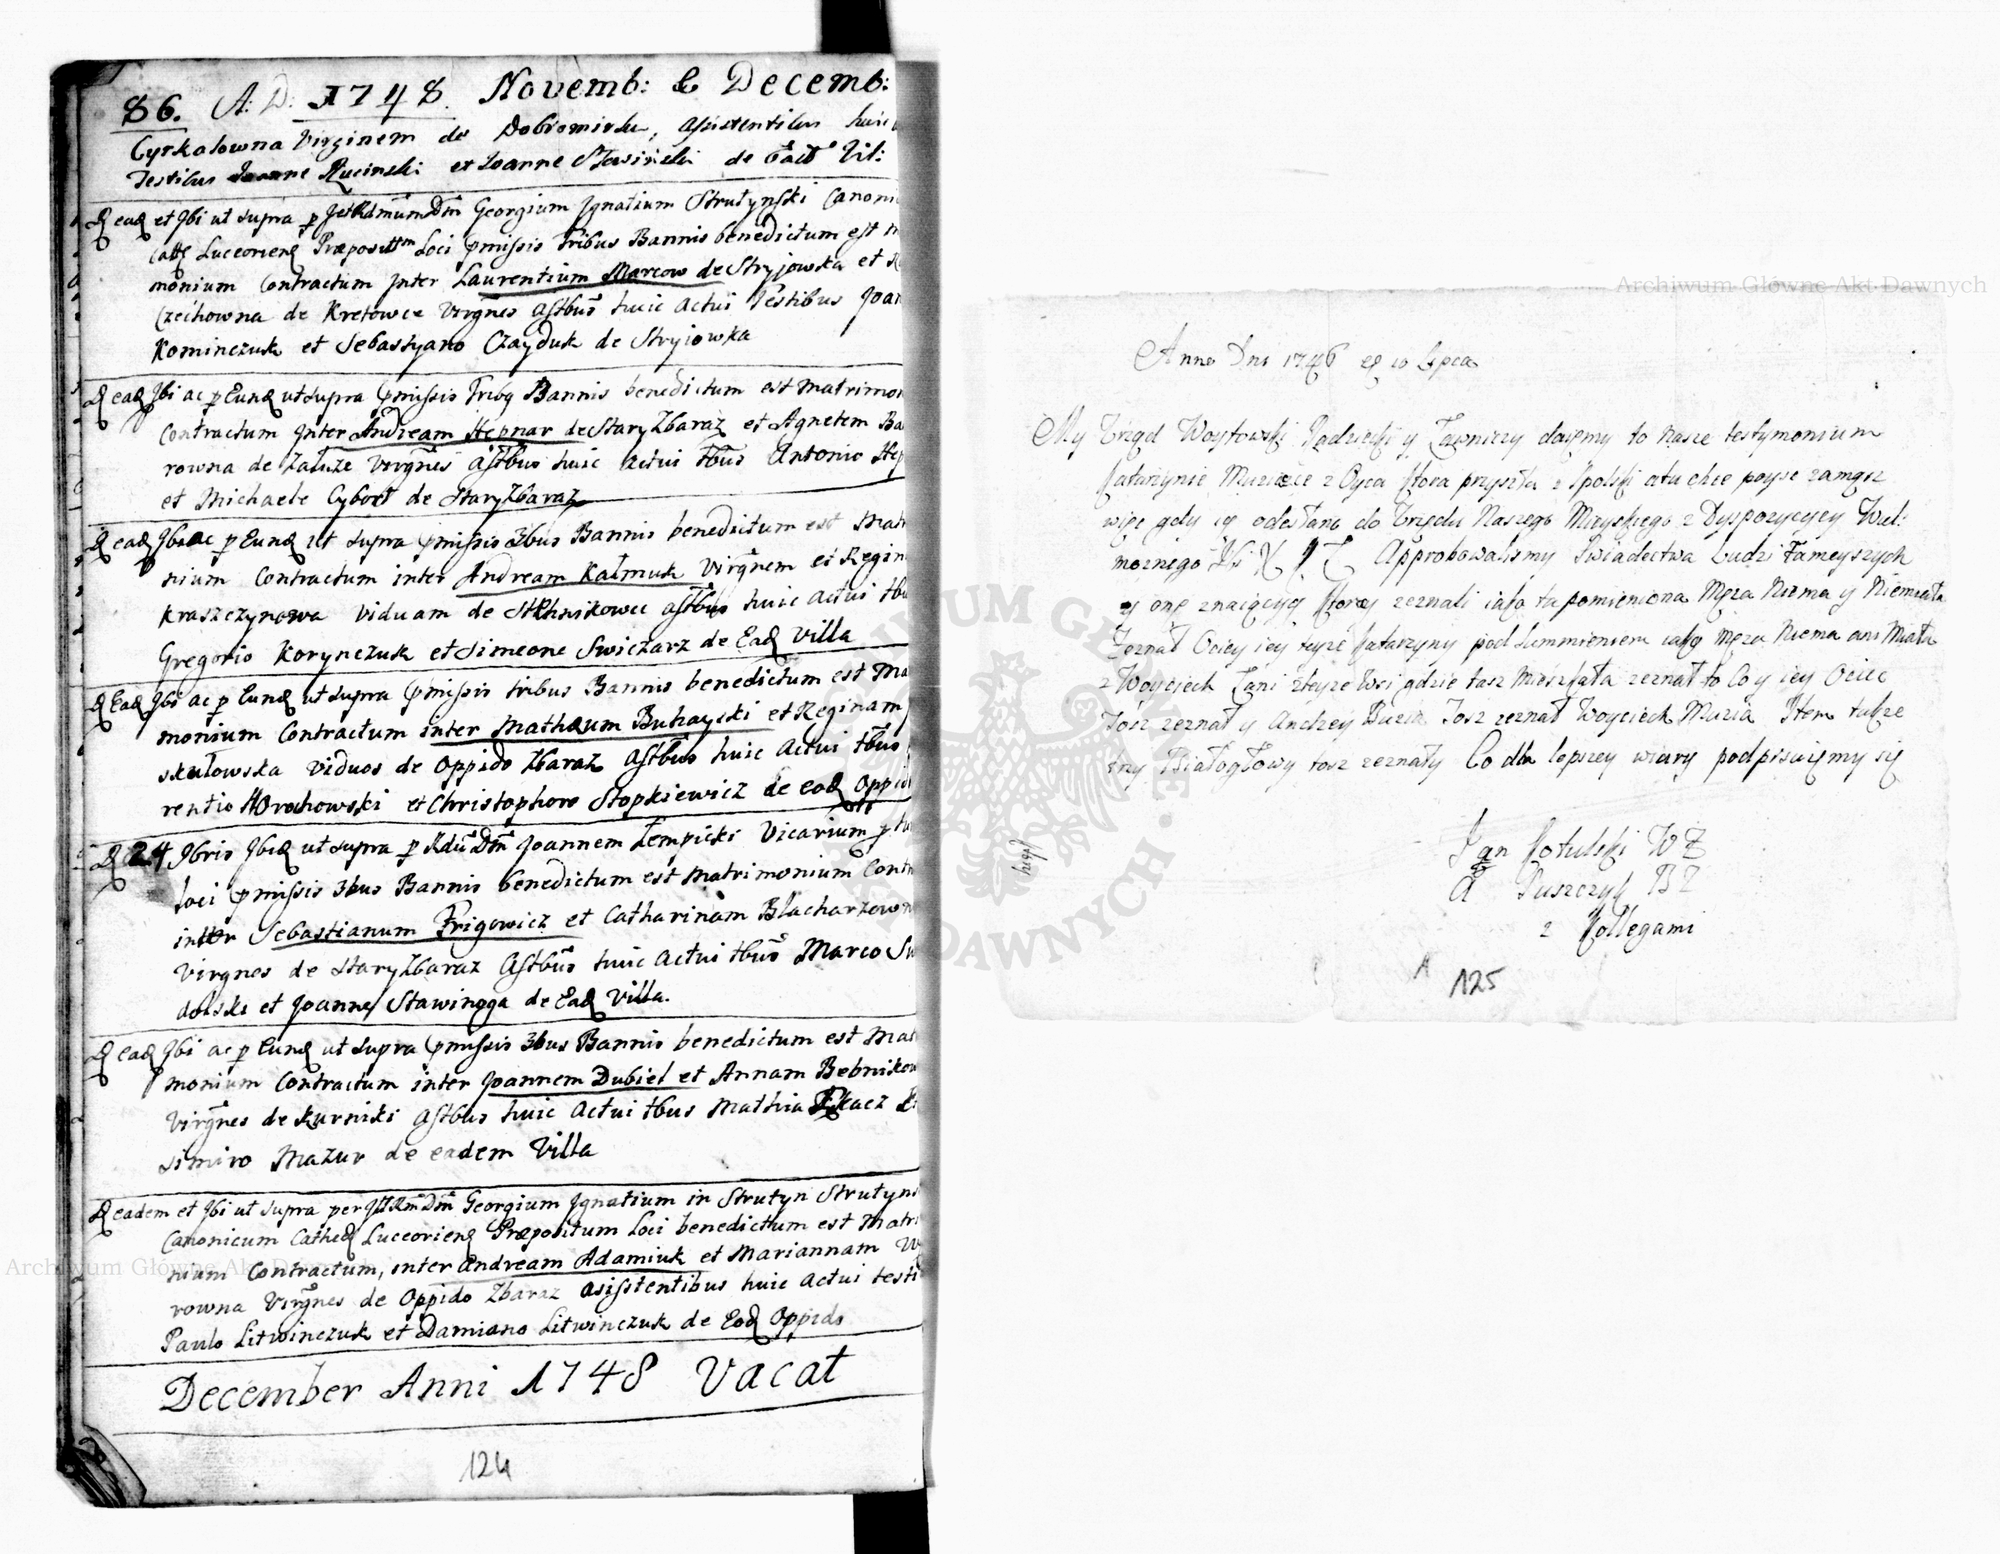 86. A: D: 1748. Novemb: & Decemb:
Cyrkalowna Virginem de Dobromirka, assistentibus huic
Testibus Joanne Rucinski et Joanne Stawinski de Vil:
D ead et Jbi ut supra p Georgium Jgnatium Strutynski Canoni
Luceorien Præposittm Loci pmissis tribus Bannis benedictum est m
monium Contractum Jnter Laurentium Marcow de Stryjowka et
Czechowna de Kretowce Virgnes Astbus huic Actui Testibus Joan
Kominczuk et Sebastyano Czayduk de Stryiowka
D ead Jbi ac p Eund ut supra pmissis Tribq Bannis benedictum est Matrimo
Contractum Jnter Andream Hepnar de Stary Zbaraz et Agnetem Ba
rowna de Zaluze Virgnes Astbus huic Actui tbus Antonio Hep
et Michaele Cybort de Stary Zbaraz
D ead Jbi ac p Eund ut supra pmissis 3bus Bannis benedictum est Matr
nium Contractum inter Andream Kalmuk Virgnem et Regin
Kraszczynowa Viduam de Astbus huic Actui tbu
Gregorio Korynczuk et Simeone Swiczarz de Ead Villa
D Ead Jbi ac p Eund ut supra pmissis tribus Bannis benedictum est Ma
monium Contractum inter Mathæum Buhayski et Reginam
skulowska Viduos de Oppido Zbaraz Astbus huic Actui tbus
rentio Horochowski et Christophoro Stopkiewicz de eod Oppid
D 24 9bris Jbid ut supra p Rdu Dm Joannem Lempicki Vicarium p
Loci pmissis 3bus Bannis benedictum est Matrimonium Contr
inter Sebastianum Frigowicz et Catharinam Blacharzown
Virgnes de Stary Zbaraz Astbus huic Actui tbus Marco Su
dolski et Joanne Stawingga de Ead Villa.
D ead Jbi ac p Eund ut supra pmissis 3bus Bannis benedictum est Mat
monium Contractum inter Joannem Dubiel et Annam Bebnikow
Virgnes de Kurniki Astbus huic Actui tbus Mathia Tkacz
simiro Mazur de eadem Villa
D eadem et Jbi ut supra per Georgium Jgnatium in Strutyn Strutyns
Canonicum Cathed Luceorien Præpositum Loci benedictum est Matri
nium Contractum, inter Andream Adamiuk et Mariannam W
rowna Virgnes de Oppido Zbaraz Assistentibus huic Actui testi
Paulo Litwinczuk et Damiano Litwinczuk de Eod Oppido
December Anni 1748 Vacat
124
Archiwum Główne Akt Dawnych
Anno Dni 1746 10 Lipca
My Urząd Woytowski Radziecki y Ławniczy daięmy to nasze testymonium
Katarzynie z Oyca ktora przyszła z Spolski atu chce poysc zamąsz
więc gdy ią odesłano do Urzędu Naszego Mieyskiego z Dyspozycyey Wiel:
moznego Approbowalismy Swiadectwa Ludzi Tameyszych
y onę znaiącyę ktorzy zeznali iako ta pomieniona Męza Niema y Niemiała
Zeznał Ociec iey teyze Katarzyny pod Summieniem iako męza Niema ani Miała
2 Woyciech zteyze Wsi gdzie tasz Mieszkała zeznał to Co y iey Ociec
Tosz zeznał y Andrzey Tosz zeznał Woyciech Muzia Item takze
trzy Białogłowy tosz zeznały Co dla lepszey wiary podpisuięmy się
Jan Kotulski WZ
A Puszczyk BZ
z Kollegami
125